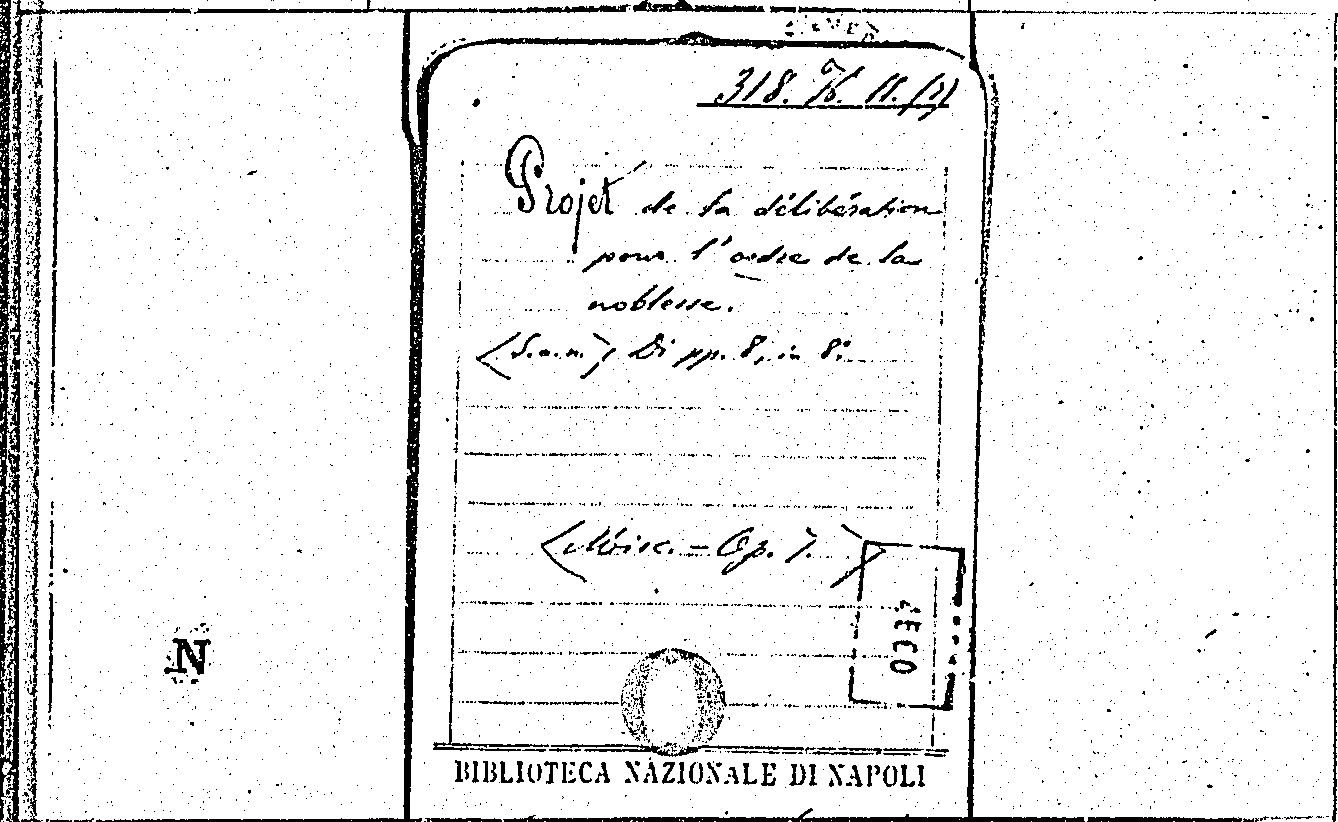 318. 76. 11. (7)
Projet de la délibération
pour l'ordre de la
noblesse.
<S.a.n.>, Di pp. 8, in 8º.
<Misc. - Op. 7. >
0037
N
BIBLIOTECA NAZIONALE DI NAPOLI